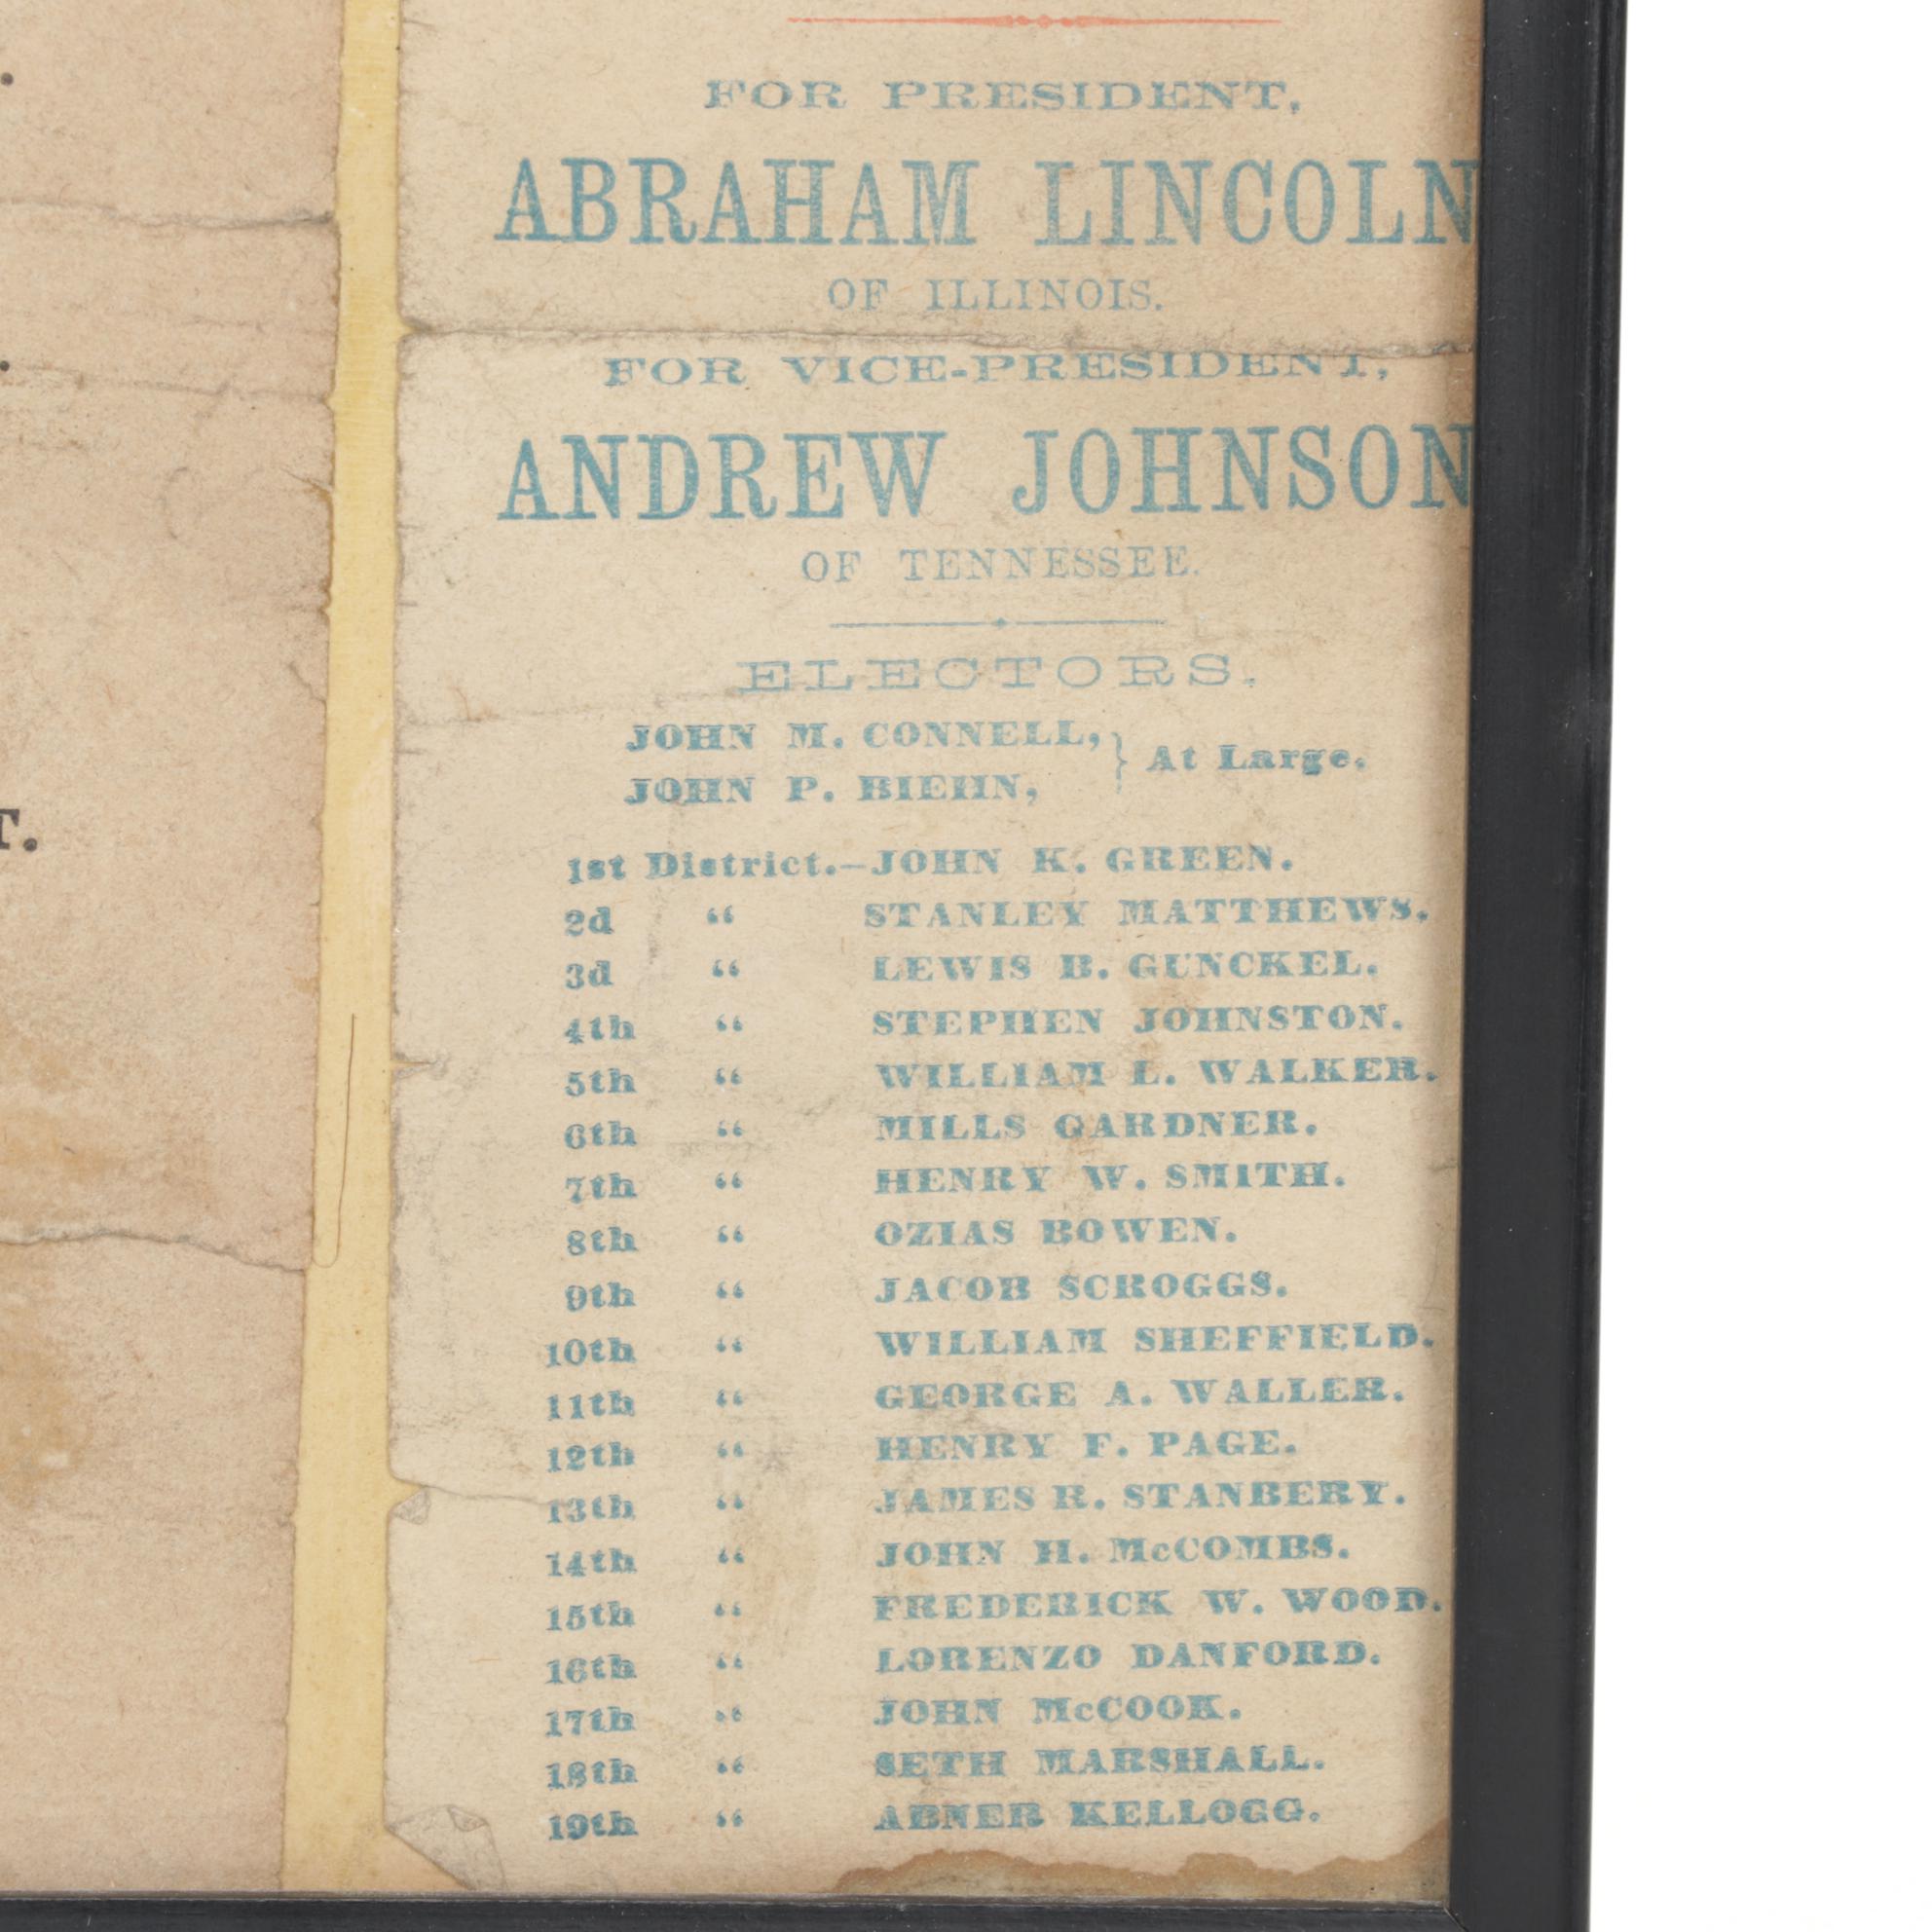 FOR PRESIDENT,
ABRAHAM LINCOLN
OF ILLINOIS.
FOR VICE-PRESIDENT,
ANDREW JOHNSON
OF TENNESSEE.
ELECTORS.
JOHN M. CONNELL,
JOHN P. BIEHN, } At Large.
1st District.—JOHN K. GREEN.
2d “ STANLEY MATTHEWS.
3d “ LEWIS B. GUNCKEL.
4th “ STEPHEN JOHNSTON.
5th “ WILLIAM L. WALKER.
6th “ MILLS GARDNER.
7th “ HENRY W. SMITH.
8th “ OZIAS BOWEN.
9th “ JACOB SCROGGS.
10th “ WILLIAM SHEFFIELD.
11th “ GEORGE A. WALLER.
12th “ HENRY F. PAGE.
13th “ JAMES R. STANBERY.
14th “ JOHN H. McCOMBS.
15th “ FREDERICK W. WOOD.
16th “ LORENZO DANFORD.
17th “ JOHN McCOOK.
18th “ SETH MARSHALL.
19th “ ABNER KELLOGG.
T.